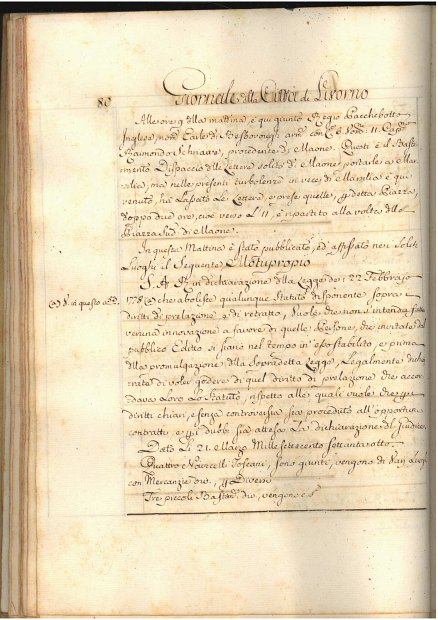 80 Giornale della Città di Livorno
Alle ore 9 della mattina, è qui giunto Regio Pacchebotto
Inglese, nom. Earle di Besborough arm. con 11 Cap.
Raimondo Schnaare, procedente di Maone. Questi è il Basti-
mento Dispaccio delle Lettere solito di Maone portarle a Mar-
silia, ma nelle presenti turbolenze in vece di Marsilia è qui
venuto, hà lasciato Le Lettere, e prese quelle, p detta Piazza,
doppo due ore, cioe verso L' 11, è ripartito alla volta della
Piazza Sud. di Maone.
In questa Mattina è stato pubblicato, ed affissato nei soliti
Luoghi il Seguente Motuproprio
S. A. R. in dichiarazione della Legge de 22 Febbrajo
1778 (a) che abolisce qualunque Statuto disponente sopra
diritti di prelazione, e di retratto, Vuole che non s' intenda fatta
veruna innovazione a favore di quelle Persone, che in vista del
pubblico Editto si siano nel tempo in esso stabilito, e prima
della promulgazione della Sopradetta Legge, Legalmente dichia
rate di voler godere di quel diritto di prelazione che accor
dava Loro Lo Statuto, rispetto alle quali vuole che p i
diritti chiari, e senza controversia sia procedito all' opportuni
contratti, e p i dubbi sia attesa La dichiarazione del Giudice.
Dato Li 21. Marzo Mille settecento settantotto
Quattro Navicelli Toscani, sono giunti, vengono di
con Mercanzie div. p Diversi
Tre piccoli Bastim. div. vengono